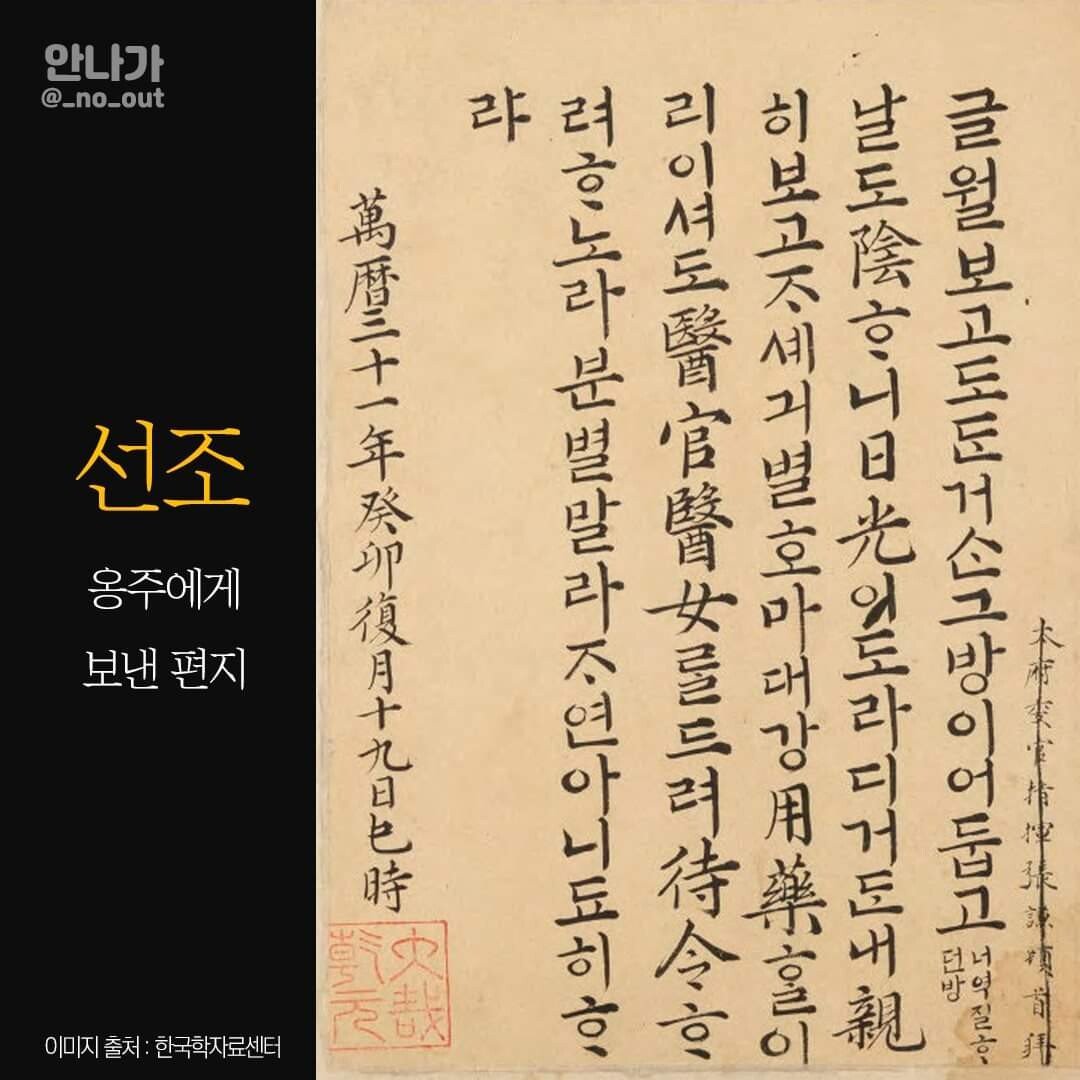 안나가
@_no_out
선조
옹주에게
보낸 편지
이미지 출처 : 한국학자료센터
本府官指揮張謙頓首拜
글월보고도ᄃᆞᆫ거ᄉᆞᆫ그방이어둡고
너역질ᄒᆞ
던방
날도陰ᄒᆞ니日光이도라디거ᄃᆞᆫ내親
히보고ᄌᆞ셰긔별호마대강用藥ᄒᆞᆯ이
리이셔도醫官醫女ᄅᆞᆯ드려待令ᄒᆞ
려ᄒᆞ노라분별말라ᄌᆞ연아니됴히ᄒᆞ
랴
萬暦三十一年癸卯復月十九日巳時
大哉
乾元